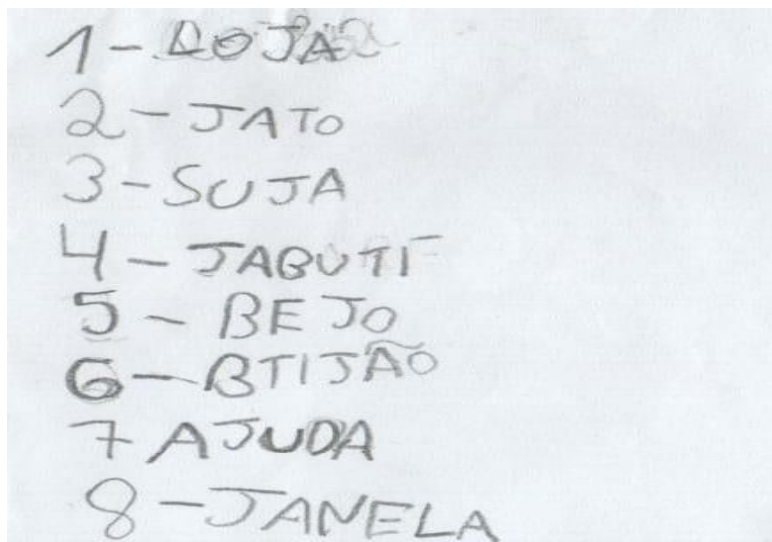 1 - LOJA
2 - JATO
3 - SUJA
4 - JABUTI
5 - BEJO
6 - BTIJÃO
7 AJUDA
8 - JANELA